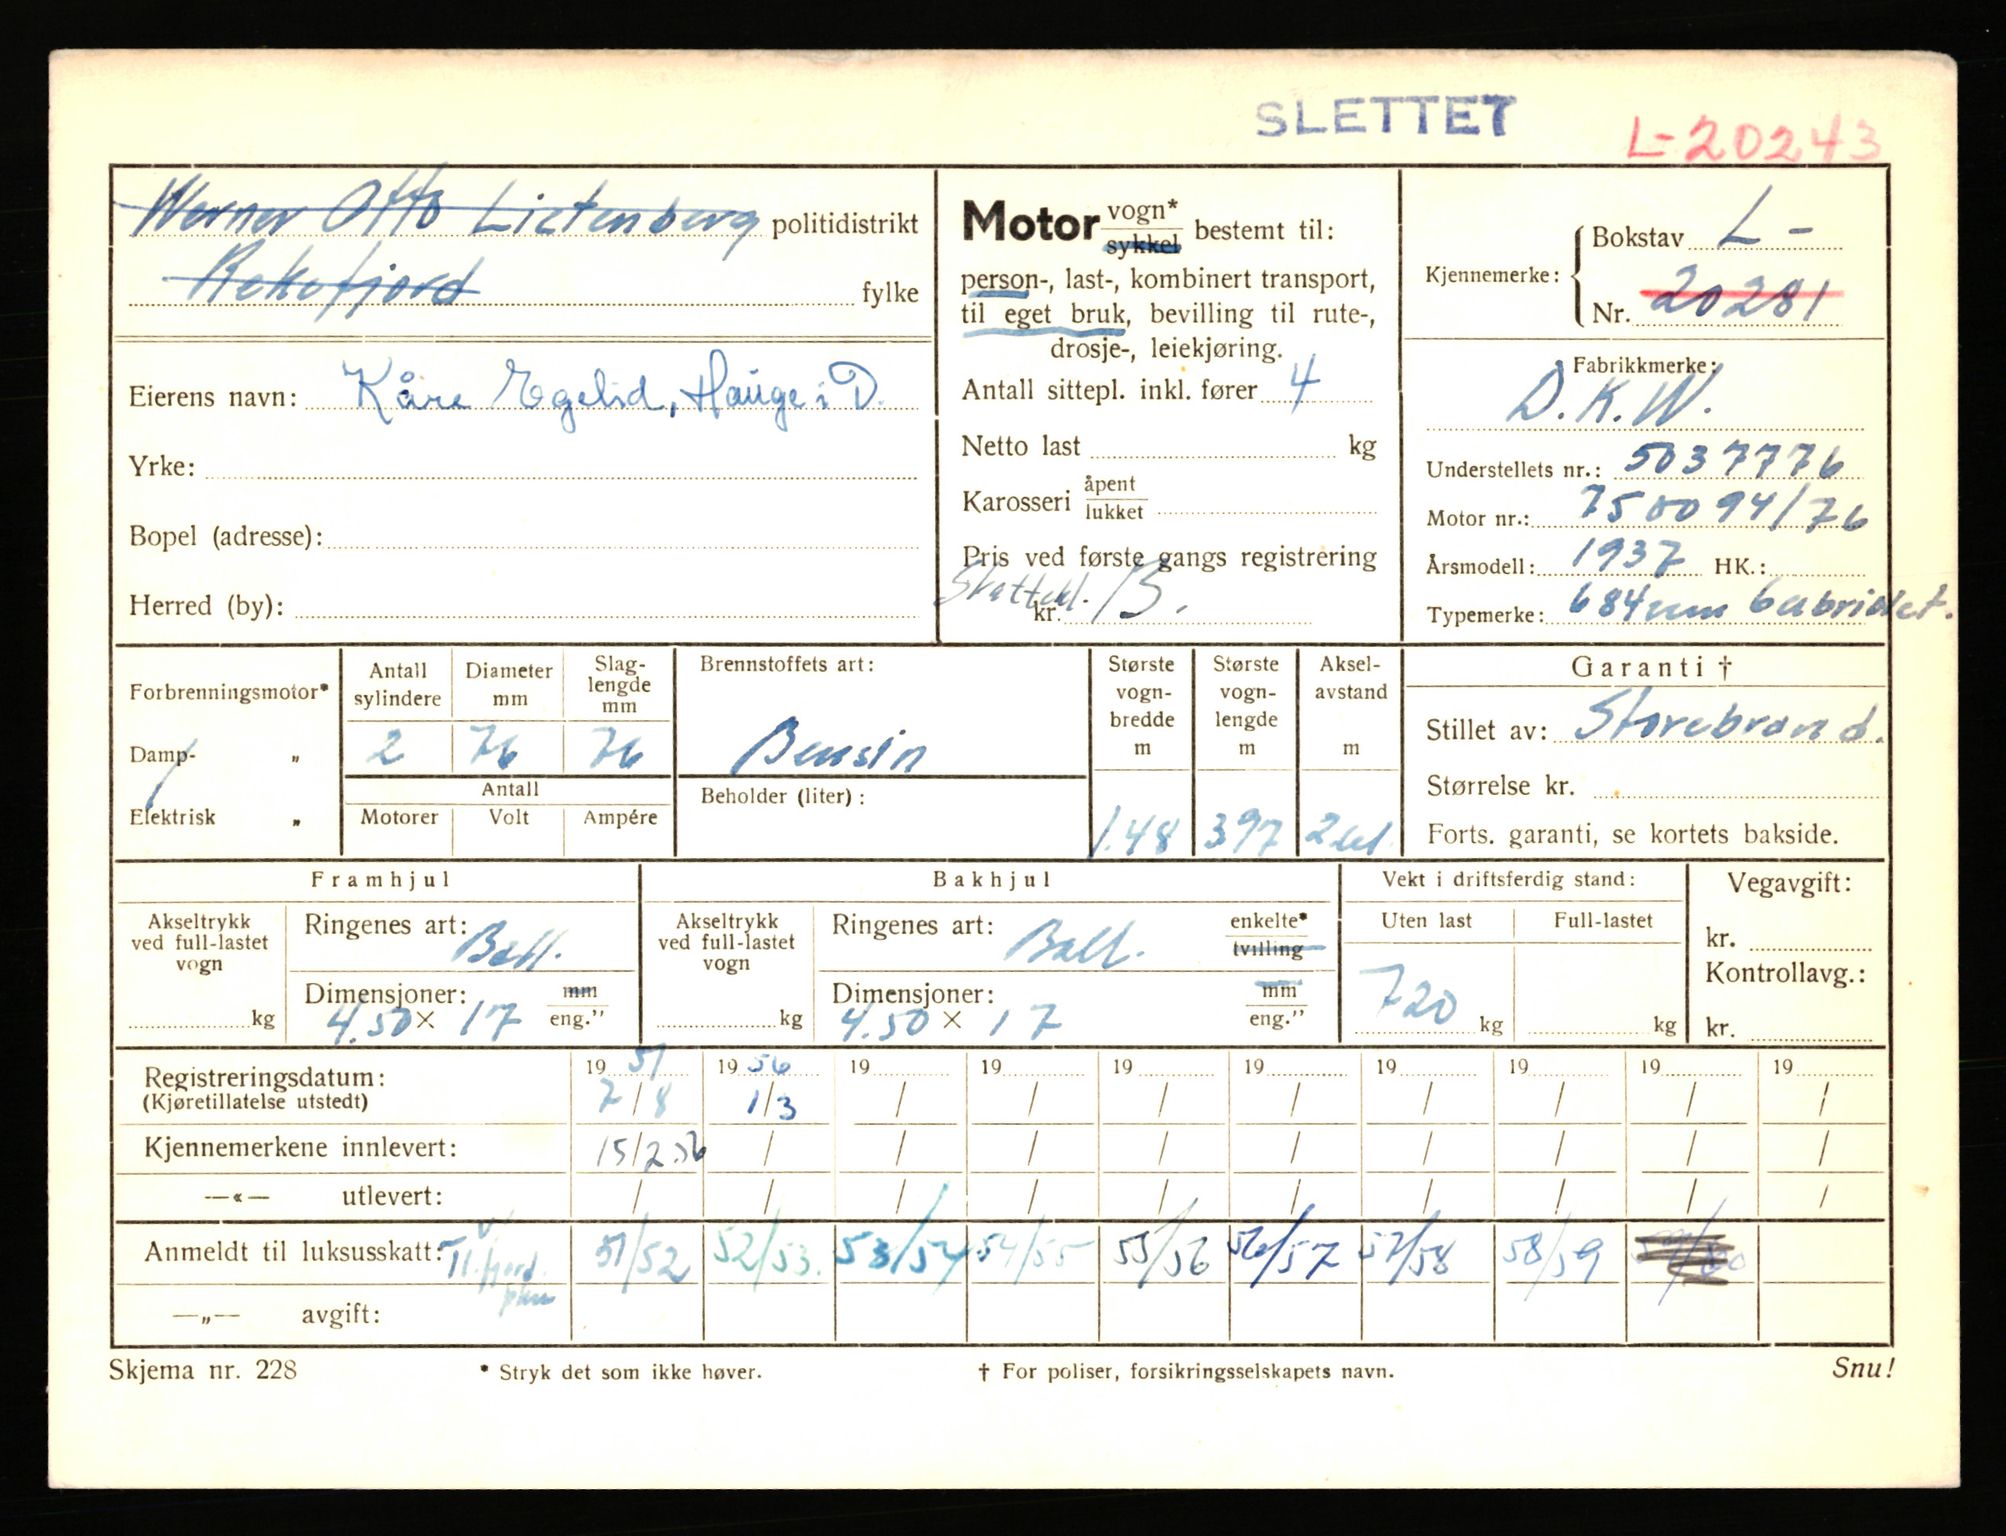 SLETTET
L-20243
Werner Otto Lictenberg politidistrikt
Rekefjord fylke
Eierens navn: Kåre Egelid, Hauge i D.
Yrke:
Bopel (adresse):
Herred (by):
Motor vogn* sykkel bestemt til:
person-, last-, kombinert transport,
til eget bruk, bevilling til rute-,
drosje-, leiekjøring.
Antall sittepl. inkl. fører 4
Netto last kg
Karosseri åpent lukket
Pris ved første gangs registrering
Skattekl. B.
kr.
Kjennemerke: Bokstav L-
Nr. 20281
Fabrikkmerke:
D.K.W.
Understellets nr.: 5037776
Motor nr.: 750094/76
Årsmodell: 1937 HK.:
Typemerke: 684
Forbrenningsmotor*
Damp- „
Elektrisk „
Antall sylindere
Diameter mm
Slag-lengde mm
2 76 76
Antall
Motorer Volt Ampére
Brennstoffets art:
Bensin
Beholder (liter):
Største vogn-bredde m
1.48
Største vogn-lengde m
397
Aksel-avstand m
Garanti †
Stillet av: Storebrand.
Størrelse kr.
Forts. garanti, se kortets bakside.
Framhjul
Akseltrykk ved full-lastet vogn
kg
Ringenes art: Ball.
Dimensjoner: mm
4.50 × 17 eng."
Bakhjul
Akseltrykk ved full-lastet vogn
kg
Ringenes art: Ball. enkelte* tvilling
Dimensjoner: mm
4.50 × 17 eng."
Vekt i driftsferdig stand:
Uten last Full-lastet
720 kg kg
Vegavgift:
kr.
Kontrollavg.:
kr.
Registreringsdatum: 19 51 19 56 19 19 19 19 19 19 19 19
(Kjøretillatelse utstedt) 7/8 1/3 / / / / / / / /
Kjennemerkene innlevert: 15/2.56 / / / / / / / / /
—«— utlevert: / / / / / / / / / /
Anmeldt til luksusskatt: 51/52 52/53. 53/54 54/55 55/56 56/57 57/58 58/59
—„— avgift:
Skjema nr. 228
* Stryk det som ikke høver.
† For poliser, forsikringsselskapets navn.
Snu!